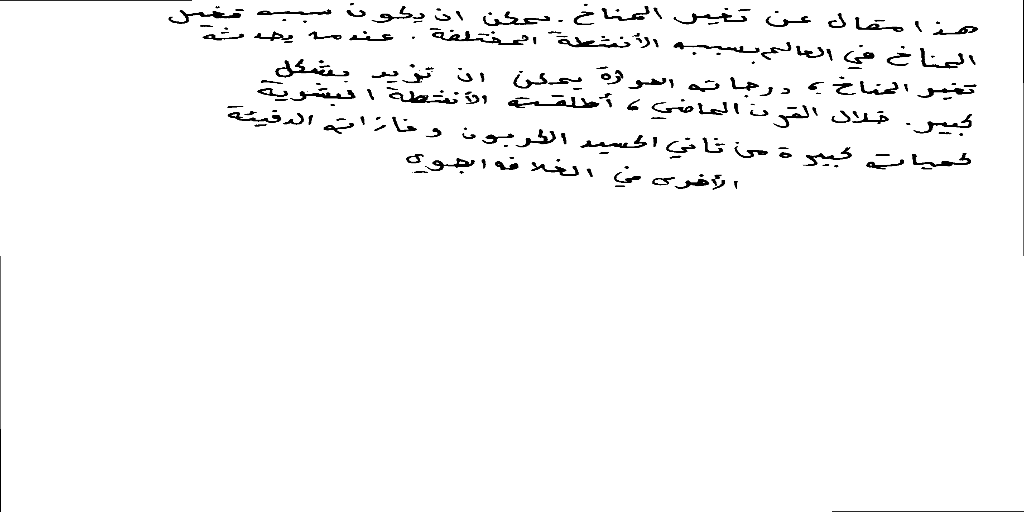 هذا مقال عن تغير المناخ. يمكن ان يكون سبب تغير
المناخ في العالم بسبب الأنشطة المختلفة. عندما يحدث
تغير المناخ، درجات الحرارة يمكن ان تزيد بشكل
كبير. خلال القرن الماضي، أطلقت الأنشطة البشرية
كميات كبيرة من ثاني اكسيد الكربون و غازات الدفيئة
الأخرى في الغلاف الجوي